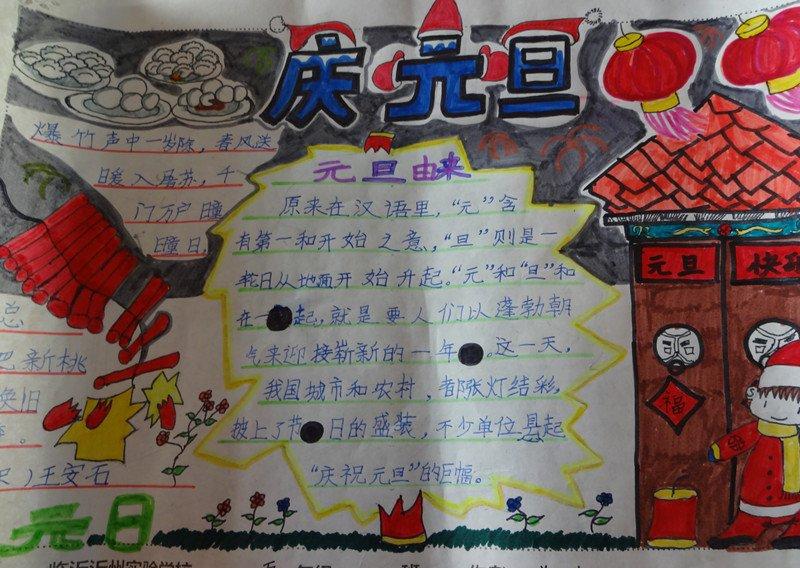 庆元旦
爆竹声中一岁除，春风送
暖入屠苏，千
门万户瞳
瞳日，
总
把新桃
换旧
）王安石
元日
元旦由来
原来在汉语里，“元”含
有第一和开始之意，“旦”则是一
轮日从地面开始升起。“元”和“旦”和
在一起，就是要人们以蓬勃朝
气来迎接崭新的一年。这一天，
我国城市和农村，都张灯结彩，
披上了节日的盛装，不少单位悬起
“庆祝元旦”的巨幅。
元旦
快
福